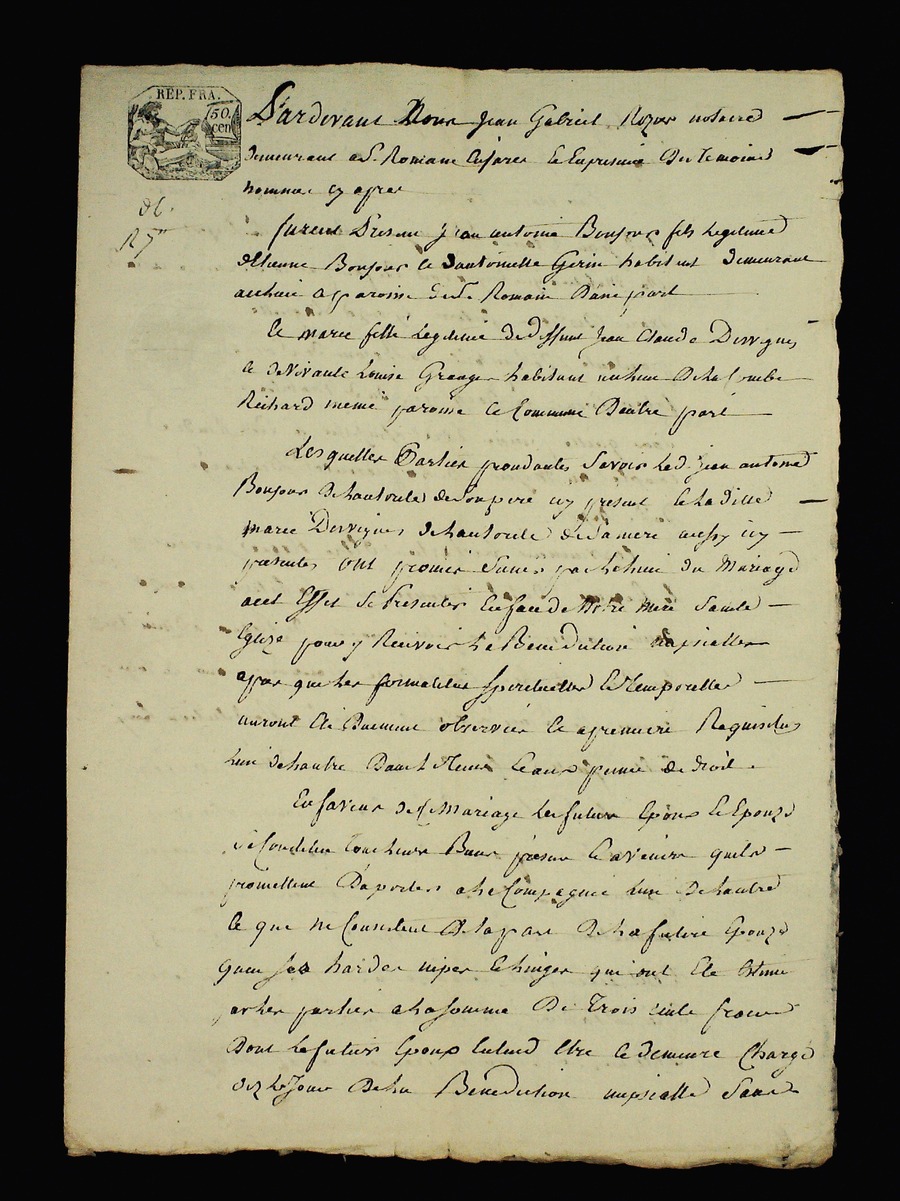 REP. FRA.
50. cen
Pardevant Nous Jean Gabriel Rozier notaire
demeurant a St Romain En presence Des Temoins
nommes cy apres
furent Present Jean antoine Bonjour fils Legitime
detienne Bonjour et dantoinette Gerin habitant demeurant
paroisse de St Romain Dune part
Et marie fille Legitime de deffunt Jean Claude Dervignes
et de vivante Louise Grange habitant au lieu De La Combe
Richard meme paroisse et Commune Dautre part
Lesquelles Parties procedantes Savoir Le d. Jean antoine
Bonjour De Lautorité de Son pere icy present et La ditte
marie Dervignes de Lautorité de Sa mere aussy icy
presentes ont promis Sunir par Le Lien du Mariage
a cet Effet de Se Presenter En face de Notre mere Sainte
Eglize pour y Recevoir La Benediction nupsialle
apres que Les formalites Spirituelles et Temporelles
auront été Duement observées et a premiere Requisition
Lun de Lautre peine de droit.
En faveur de Ce Mariage Les futurs Epoux et Epouze
Se Constitue Tous Leurs Biens present et avenir quils
promettent Daporter a La Compagnie Lun De Lautre
Ce que ne Consistent De La part De La future Epouze
quen Ses hardes nipes et Linges qui ont été Estimé
par Les parties a La Somme De Trois Cents francs
Dont Le futur Epoux Entend Etre et demeure Chargé
dez Le Jour De La Benediction nupsialle Sans